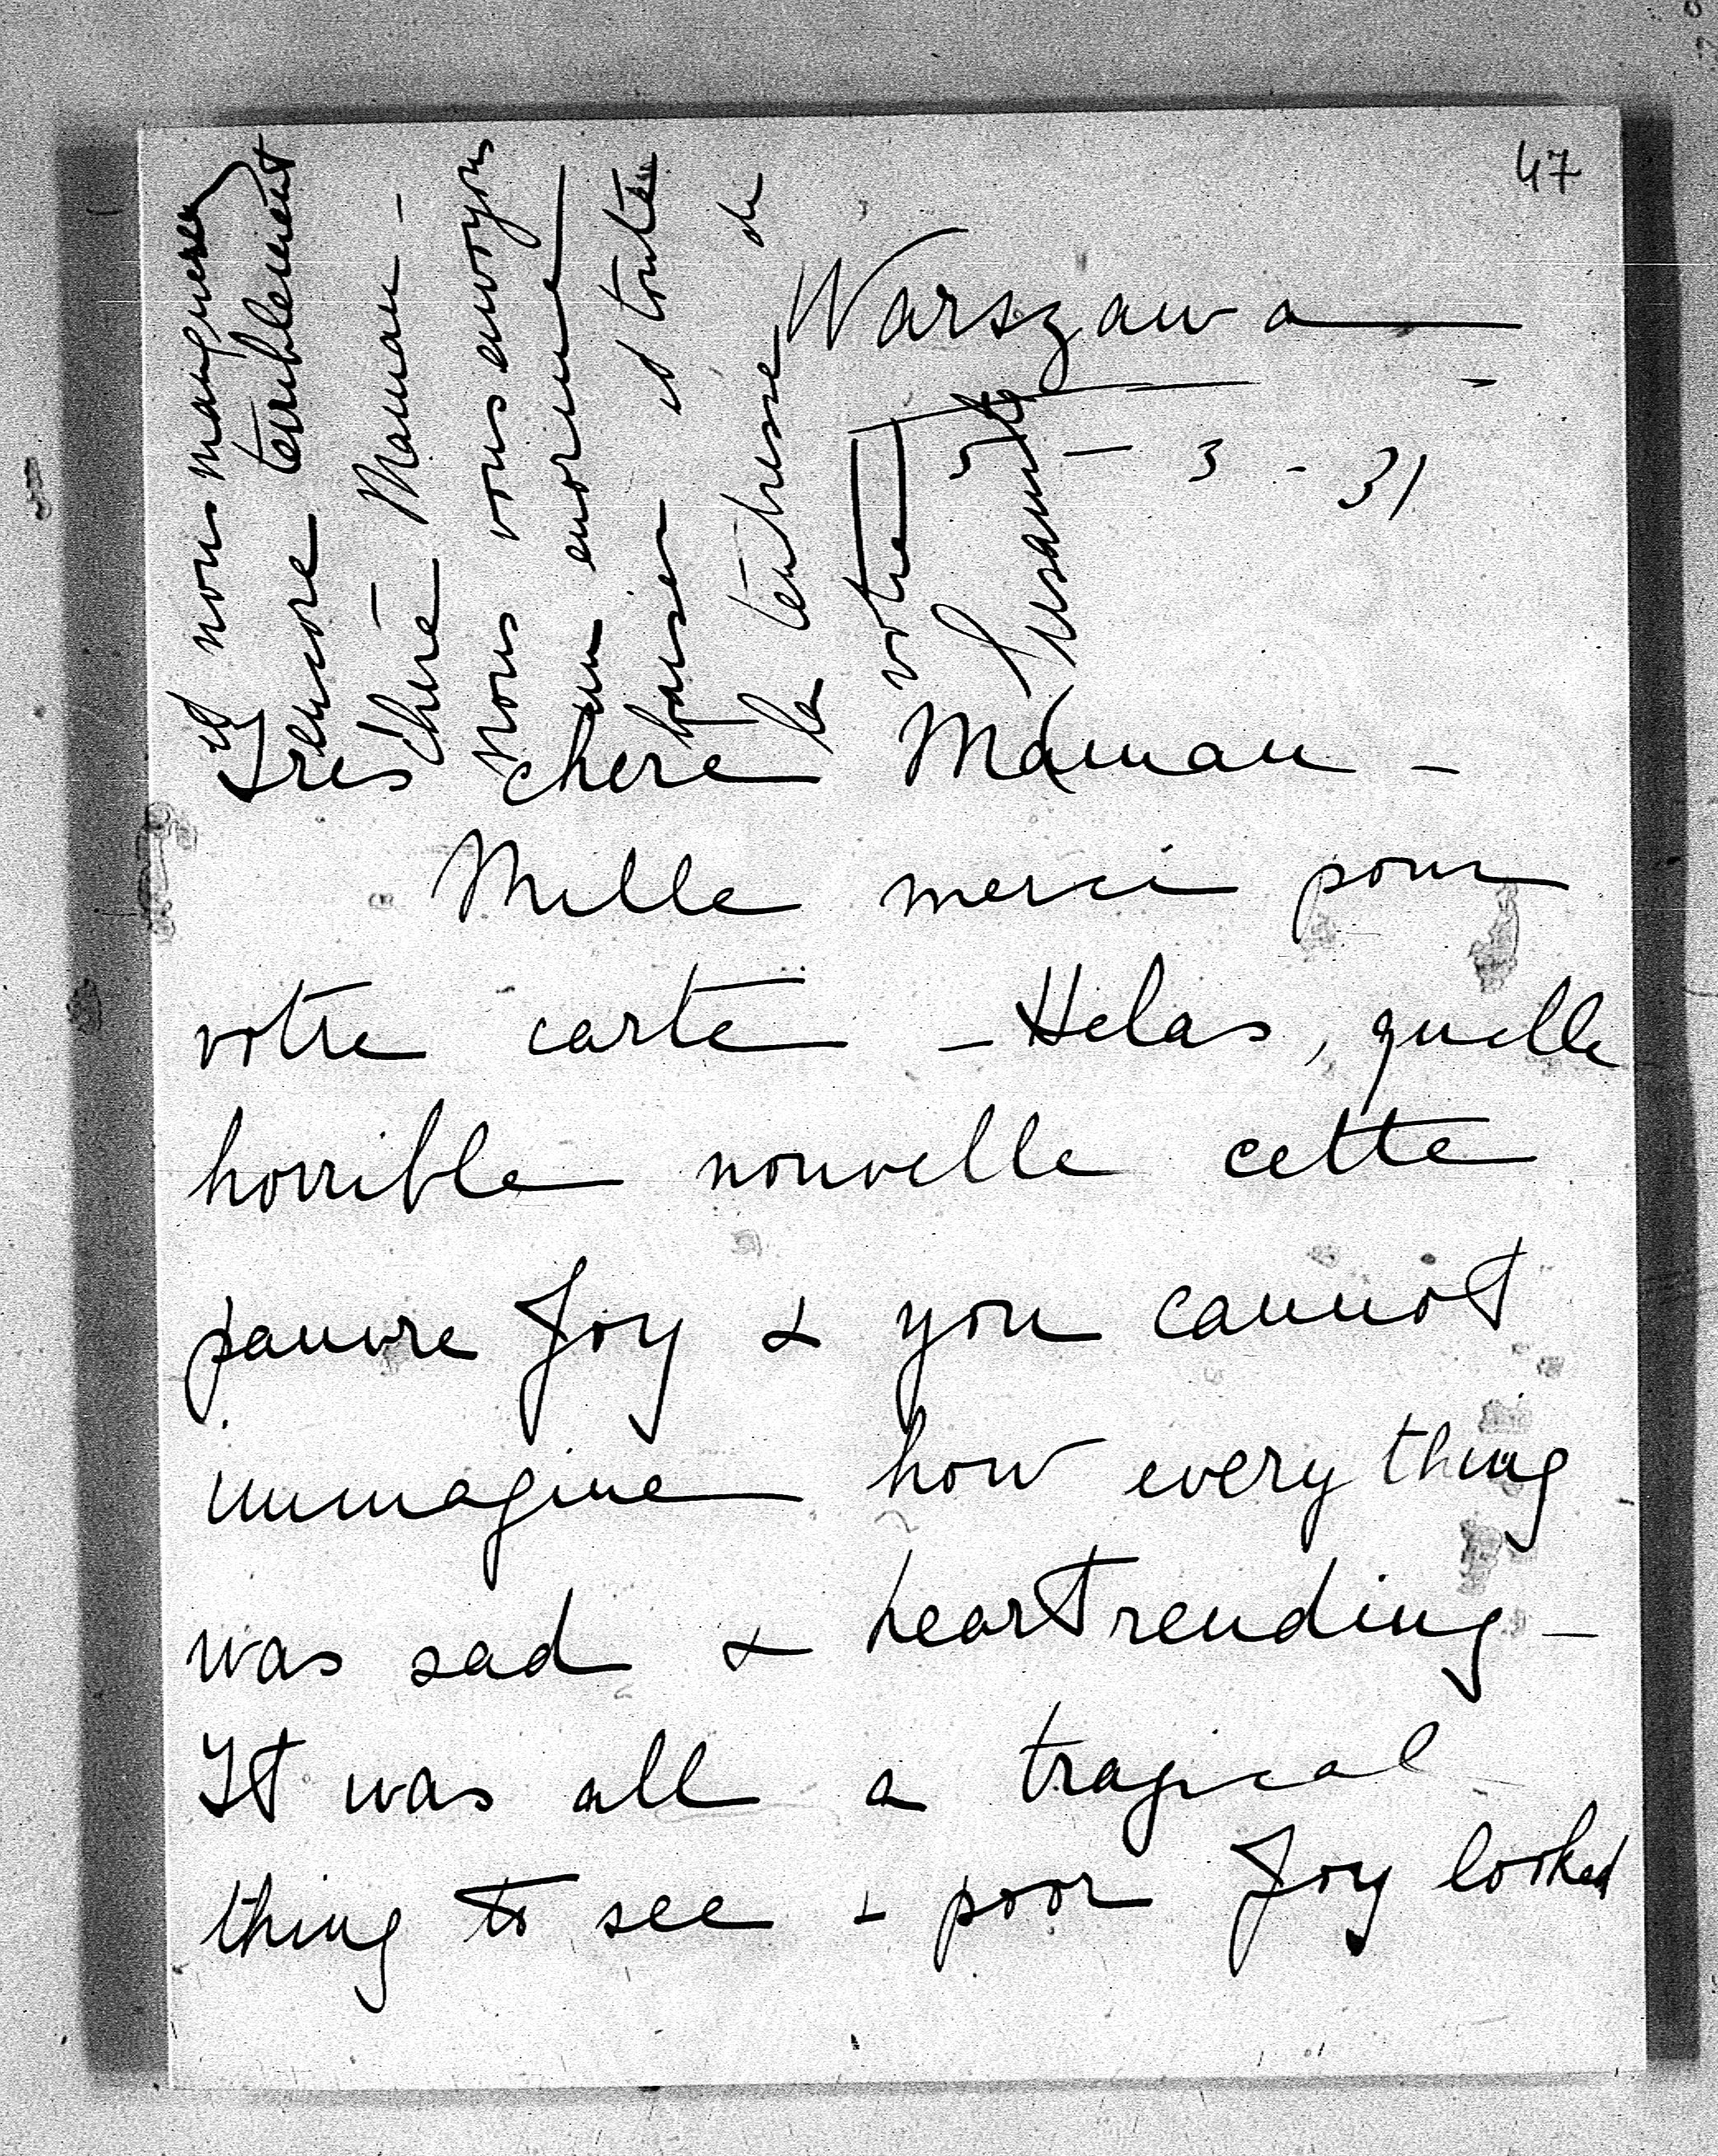 47
Warszawa
5 - 3 - 31
Très chere Maman -
Mille merci pour
votre carte - Helas, quelle
horrible nouvelle cette
pauvre Joy & you cannot
immagine how every thing
was sad & heartrending -
It was all a tragical
thing to see & poor Joy looked
nous manquera
encore terriblement
chere Maman -
nous vous envoyons
un enorme
baiser et toute
la tendresse de
votre